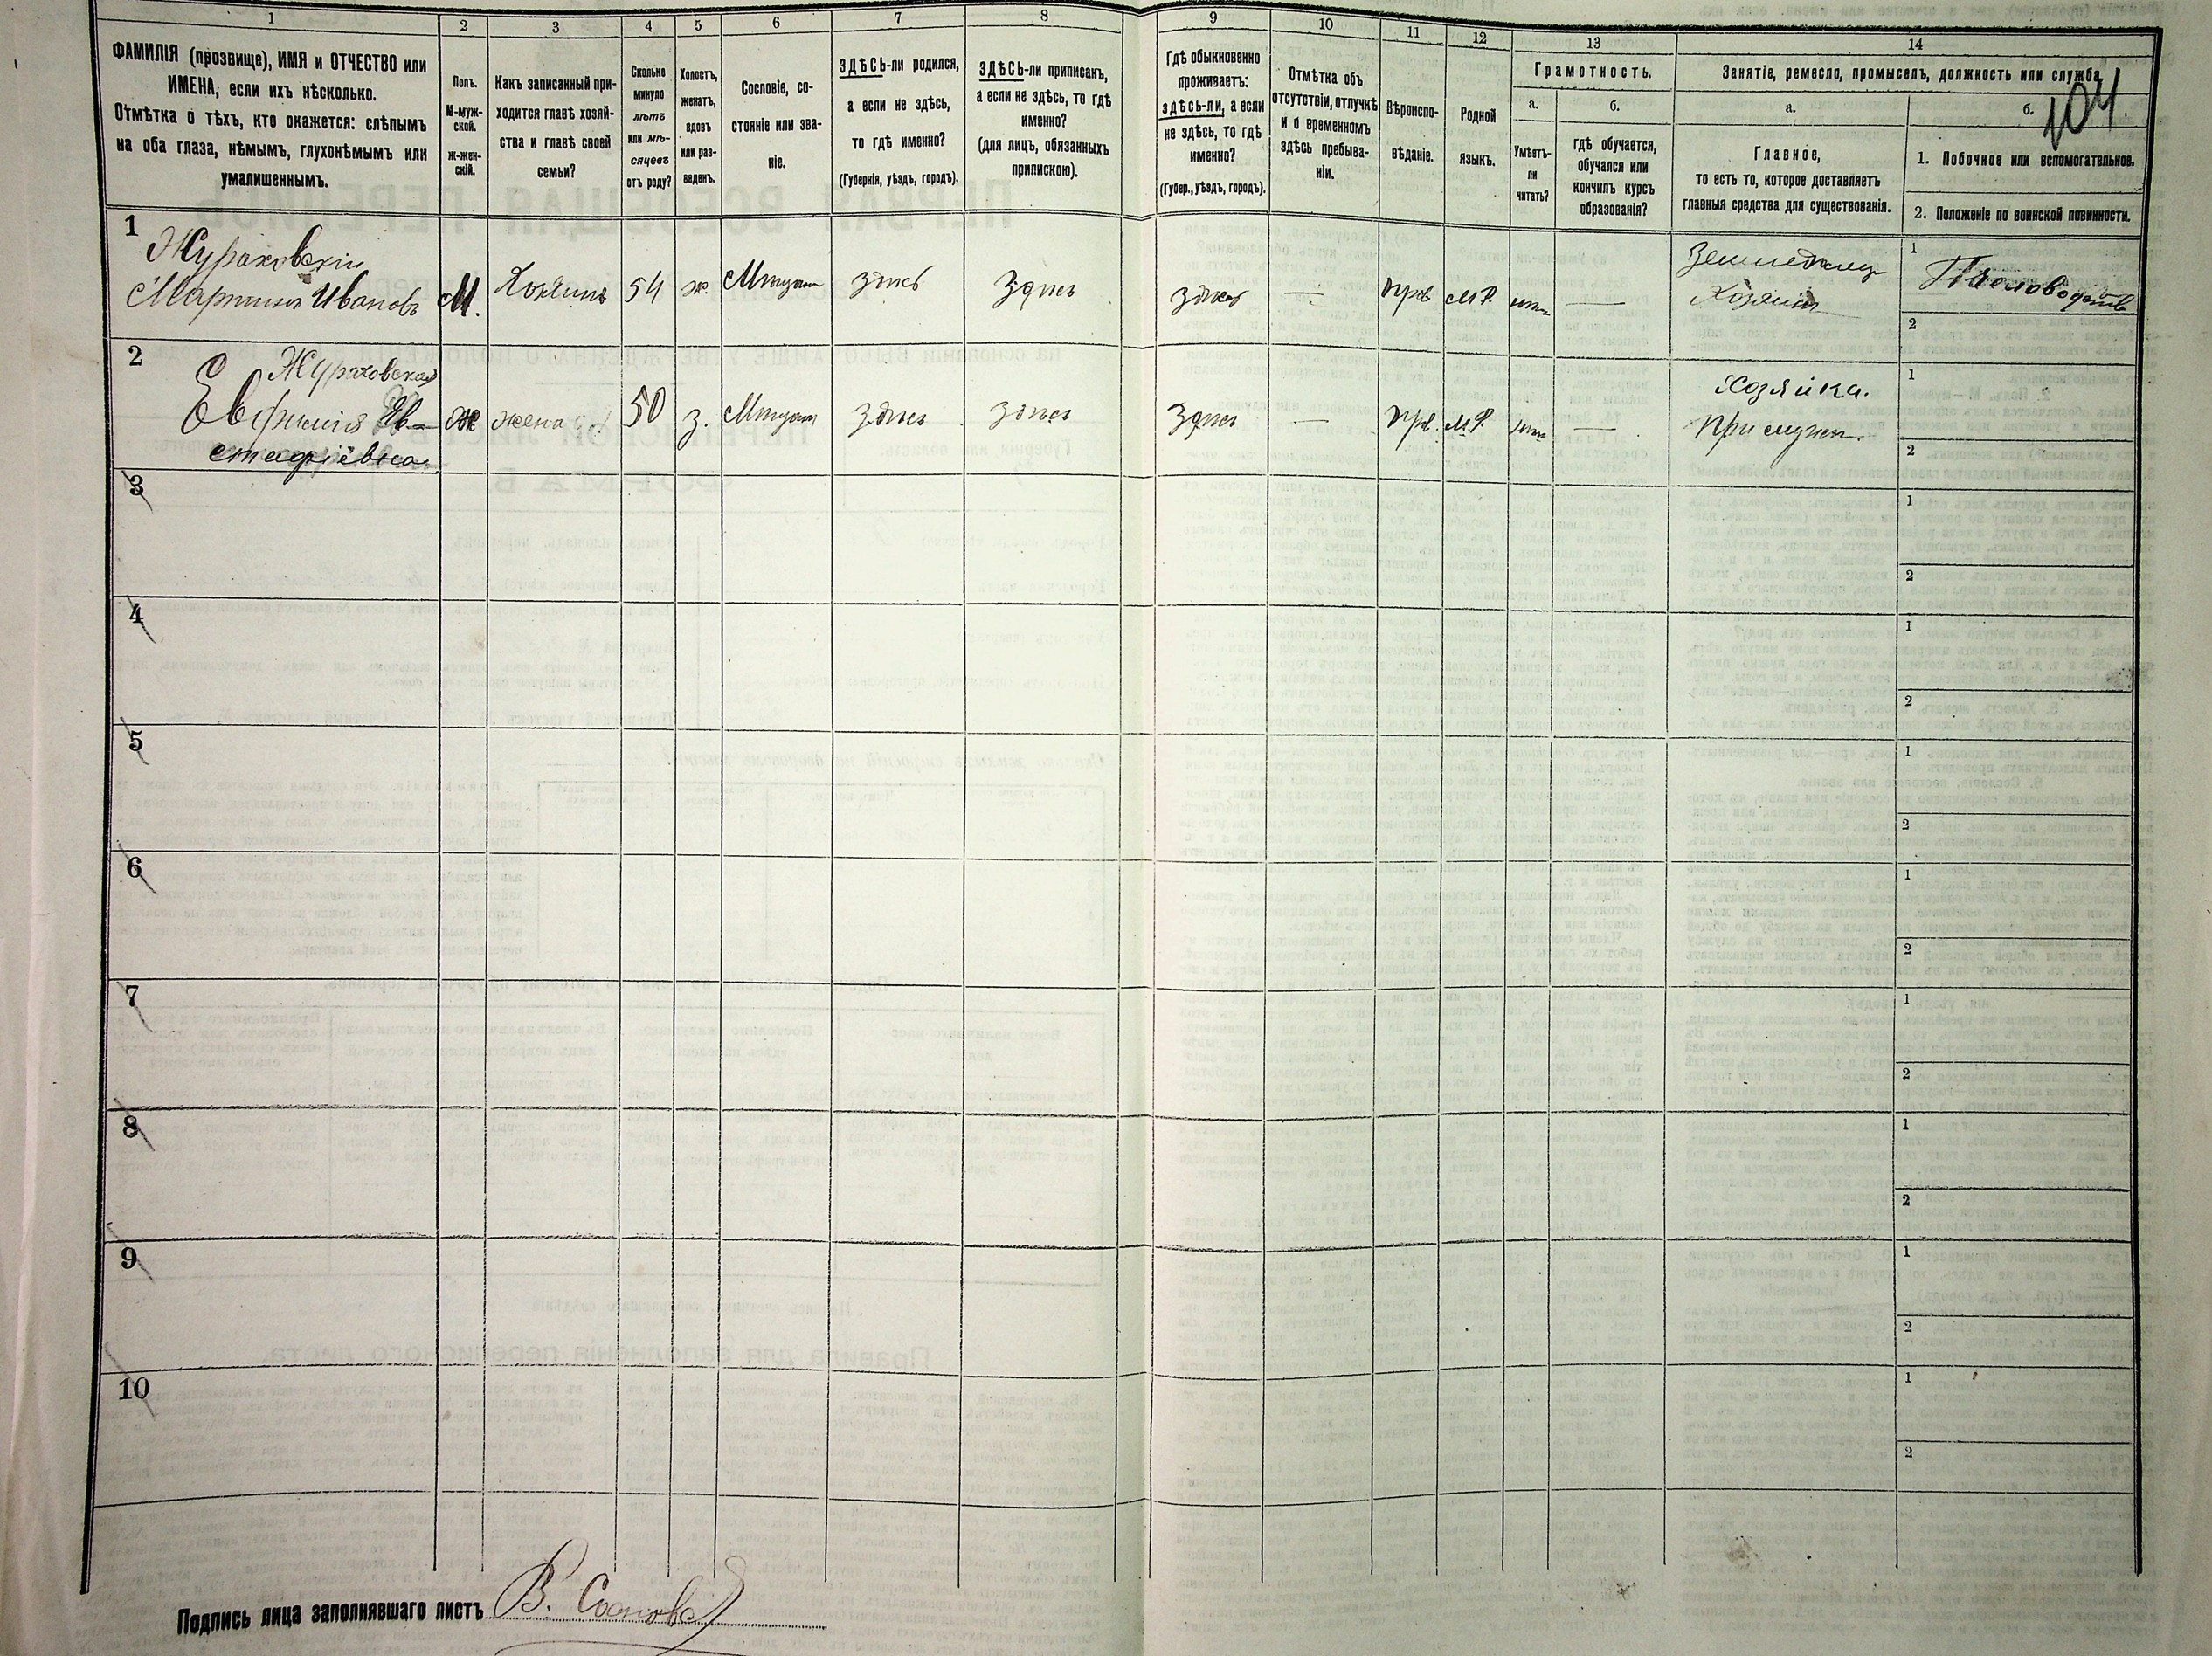 1
2
3
4
5
6
7
8
9
10
11
12
13
14
ФАМИЛІЯ (прозвище), ИМЯ и ОТЧЕСТВО или
ИМЕНА, если ихъ нѣсколько.
Отмѣтка о тѣхъ, кто окажется: слѣпымъ
на оба глаза, нѣмымъ, глухонѣмымъ или
умалишеннымъ.
Полъ.
М-муж-
ской.
ж-жен-
скій.
Какъ записанный при-
ходится главѣ хозяй-
ства и главѣ своей
семьи?
Сколько
минуло
лѣтъ
или мѣ-
сяцевъ
отъ роду?
Холостъ,
женатъ,
вдовъ
или раз-
веденъ.
Сословіе, со-
стояніе или зва-
ніе.
ЗДѢСЬ-ли родился,
а если не здѣсь,
то гдѣ именно?
(Губернія, уѣздъ, городъ).
ЗДѢСЬ-ли приписанъ,
а если не здѣсь, то гдѣ
именно?
(для лицъ, обязанныхъ
припискою).
Гдѣ обыкновенно
проживаетъ:
здѣсь-ли, а если
не здѣсь, то гдѣ
именно?
(Губер., уѣздъ, городъ).
Отмѣтка объ
отсутствіи, отлучкѣ
и о временномъ
здѣсь пребыва-
ніи.
Вѣроиспо-
вѣданіе.
Родной
языкъ.
Грамотность.
а.
Умѣетъ-
ли
читать?
б.
гдѣ обучается,
обучался или
кончилъ курсъ
образованія?
Занятіе, ремесло, промыселъ, должность или служба.
а.
Главное,
то есть то, которое доставляетъ
главныя средства для существованія.
б.
104
1. Побочное или вспомогательное.
2. Положеніе по воинской повинности.
1
Жураховскій
Мартинъ Ивановъ
М.
Хозяинъ
54
ж.
здѣсь
Здѣсь
здѣсь
—
прав
М.Р.
—
Хозяинъ
1
Пчеловодств
2
2
Журaховская
Евфимія Ев-
стафіевна
Ж
жена
50
з.
Здѣсь
здѣсь
Здѣсь
—
прв.
М.Р.
—
Хозяйка.
При мужѣ.
1
2
3
1
2
4
1
2
5
1
2
6
1
2
7
1
2
8
1
2
9
1
2
10
1
2
Подпись лица заполнявшаго листъ